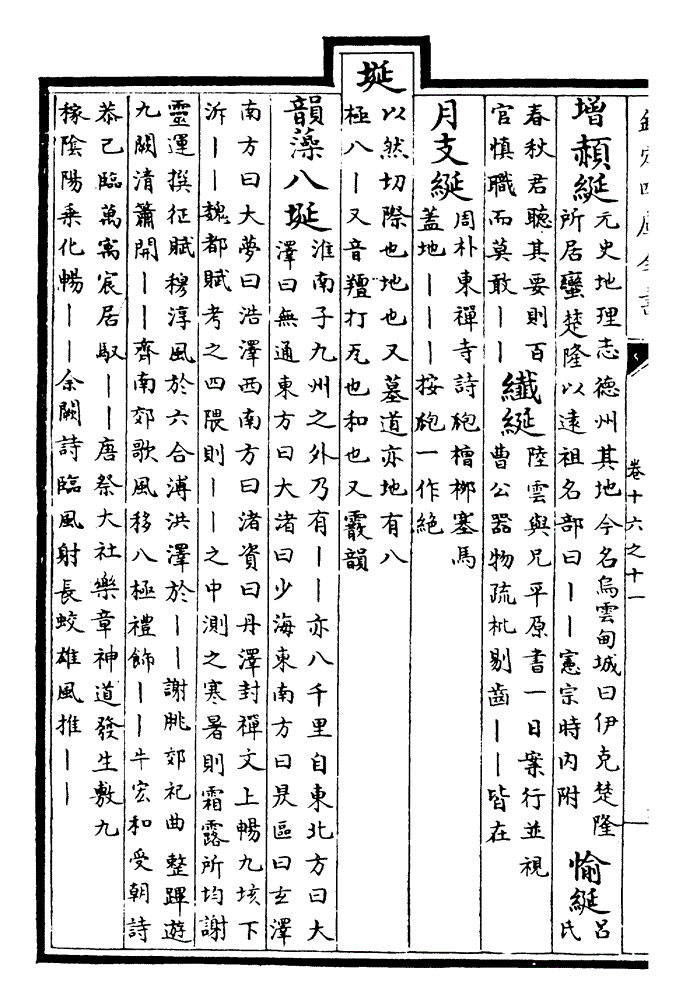 欽定四庫全書
卷十六之十一
增頳綖
元史地理志德州其地今名烏雲甸城曰伊克楚隆
所居蠻楚隆以遠祖名部曰丨丨憲宗時内附
愉綖
呂
氏
春秋君聽其要則百
官慎職而莫敢丨丨
纎綖
陸雲與兄平原書一日案行並視
曹公器物疏枇剔齒丨丨皆在
月支綖
周朴東禪寺詩砲檀梛塞馬
蓋地丨丨丨按砲一作絶
埏
以然切際也地也又墓道亦地有八
極八丨又音羶打瓦也和也又霰韻
韻藻八埏
淮南子九州之外乃有丨丨亦八千里自東北方曰大
澤曰無通東方曰大渚曰少海東南方曰昃區曰玄澤
南方曰大夢曰浩澤西南方曰渚資曰丹澤封禪文上暢九垓下
泝丨丨魏都賦考之四隈則丨丨之中測之寒暑則霜露所均謝
靈運撰征賦穆淳風於六合溥洪澤於丨丨謝朓郊祀曲整蹕遊
九闕清簫開丨丨齊南郊歌風移八極禮飾丨丨牛宏和受朝詩
恭己臨萬寓宸居馭丨丨唐祭大社樂章神道發生敷九
稼陰陽乗化暢丨丨余闕詩臨風射長蛟雄風推丨丨